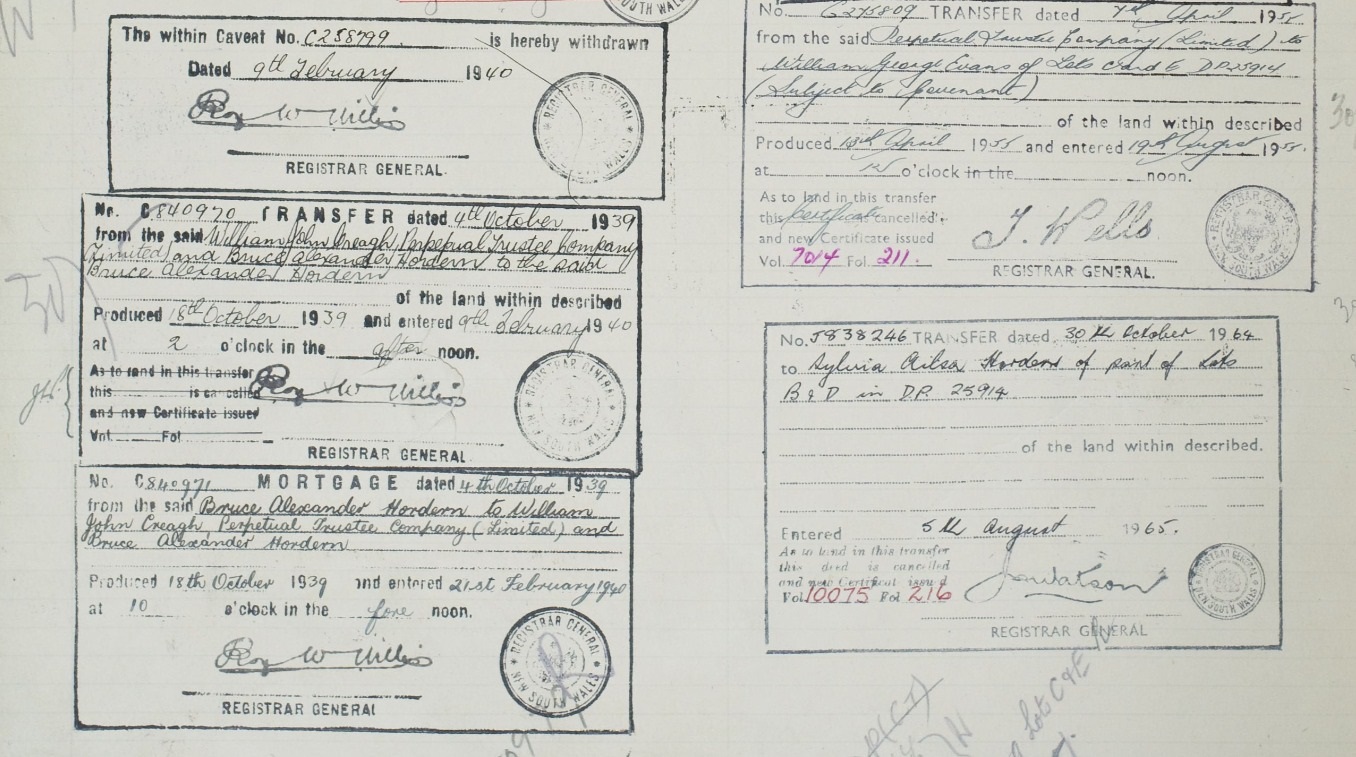 SOUTH WAL
The within Caveat No. C258799 is hereby withdrawn
Dated 9th February 1940
Roy W Willis
REGISTRAR GENERAL.
REGISTRAR GENERAL NEW SOUTH WALES
No. C840970 TRANSFER dated 4th October 1939
from the said William John Creagh, Perpetual Trustee Company
(Limited) and Bruce Alexander Hordern to the said
Bruce Alexander Hordern
of the land within described
Produced 18th October 1939 and entered 9th February 1940
at 2 o'clock in the after noon.
As to land in this transfer
this is cancelled
Roy W Willis
and new Certificate issued
Vol. Fol
REGISTRAR GENERAL
REGISTRAR GENERAL NEW SOUTH WALES
No. C840971 MORTGAGE dated 4th October 1939
from the said Bruce Alexander Hordern to William
John Creagh Perpetual Trustee Company (Limited) and
Bruce Alexander Hordern
Produced 18th October 1939 and entered 21st February 1940
at 10 o'clock in the fore noon.
Roy W Willis
REGISTRAR GENERAL
REGISTRAR GENERAL NEW SOUTH WALES
No. TRANSFER dated 7th April 1955
from the said Perpetual Trustee Company (Limited) to
William George Evans of Lots C and E DP.25914
(Subject to Covenant)
of the land within described
Produced 18th April 1955 and entered 19th August 1955.
at 12 o'clock in the noon.
As to land in this transfer
this certificate cancelled
and new Certificate issued
Vol. 7014 Fol. 211.
J. Wells
REGISTRAR GENERAL.
REGISTRAR GENERAL NEW SOUTH WALES
No. J838246 TRANSFER dated 30th October 1964
to Sylvia Ailsa Hordern of part of Lots
B & D in D.P. 25914
of the land within described.
Entered 5th August 1965.
As to land in this transfer
this deed is cancelled
and new Certificat issued
Fol. 10075 Fol 216
Jas Watson
REGISTRAR GENERAL
REGISTRAR GENERAL NEW SOUTH WALES
Lots C & E